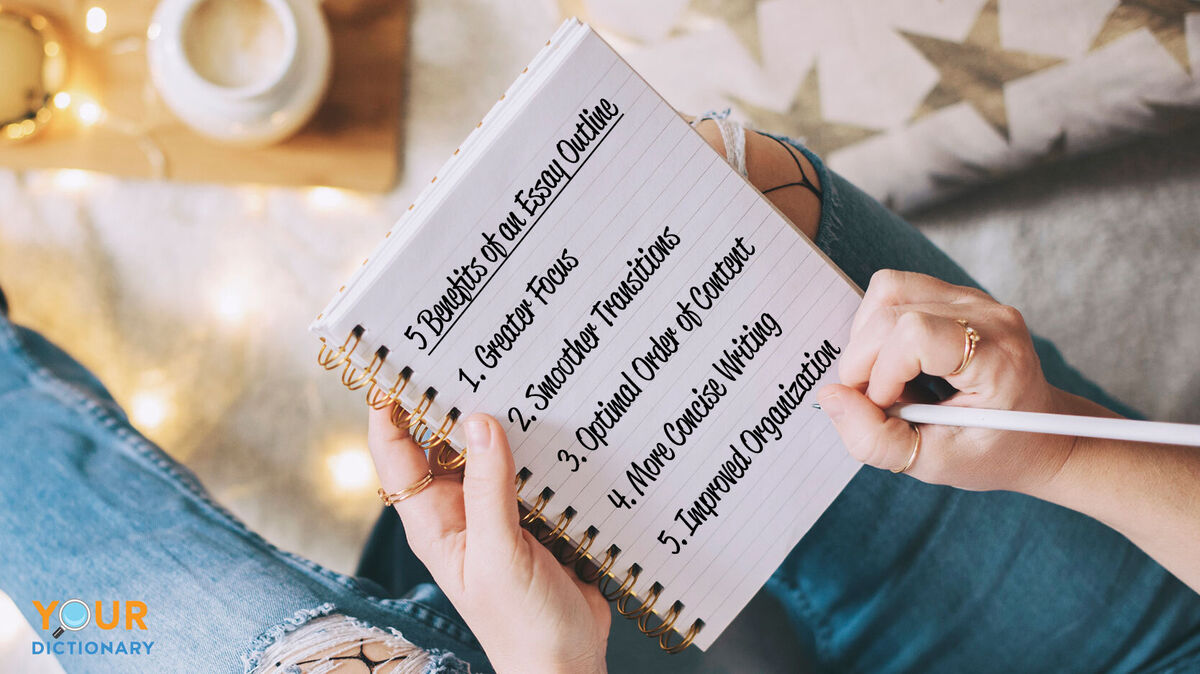 5 Benefits of an Essay Outline
1. Greater Focus
2. Smoother Transitions
3. Optimal Order of Content
4. More Concise Writing
5. Improved Organization
YOUR
DICTIONARY